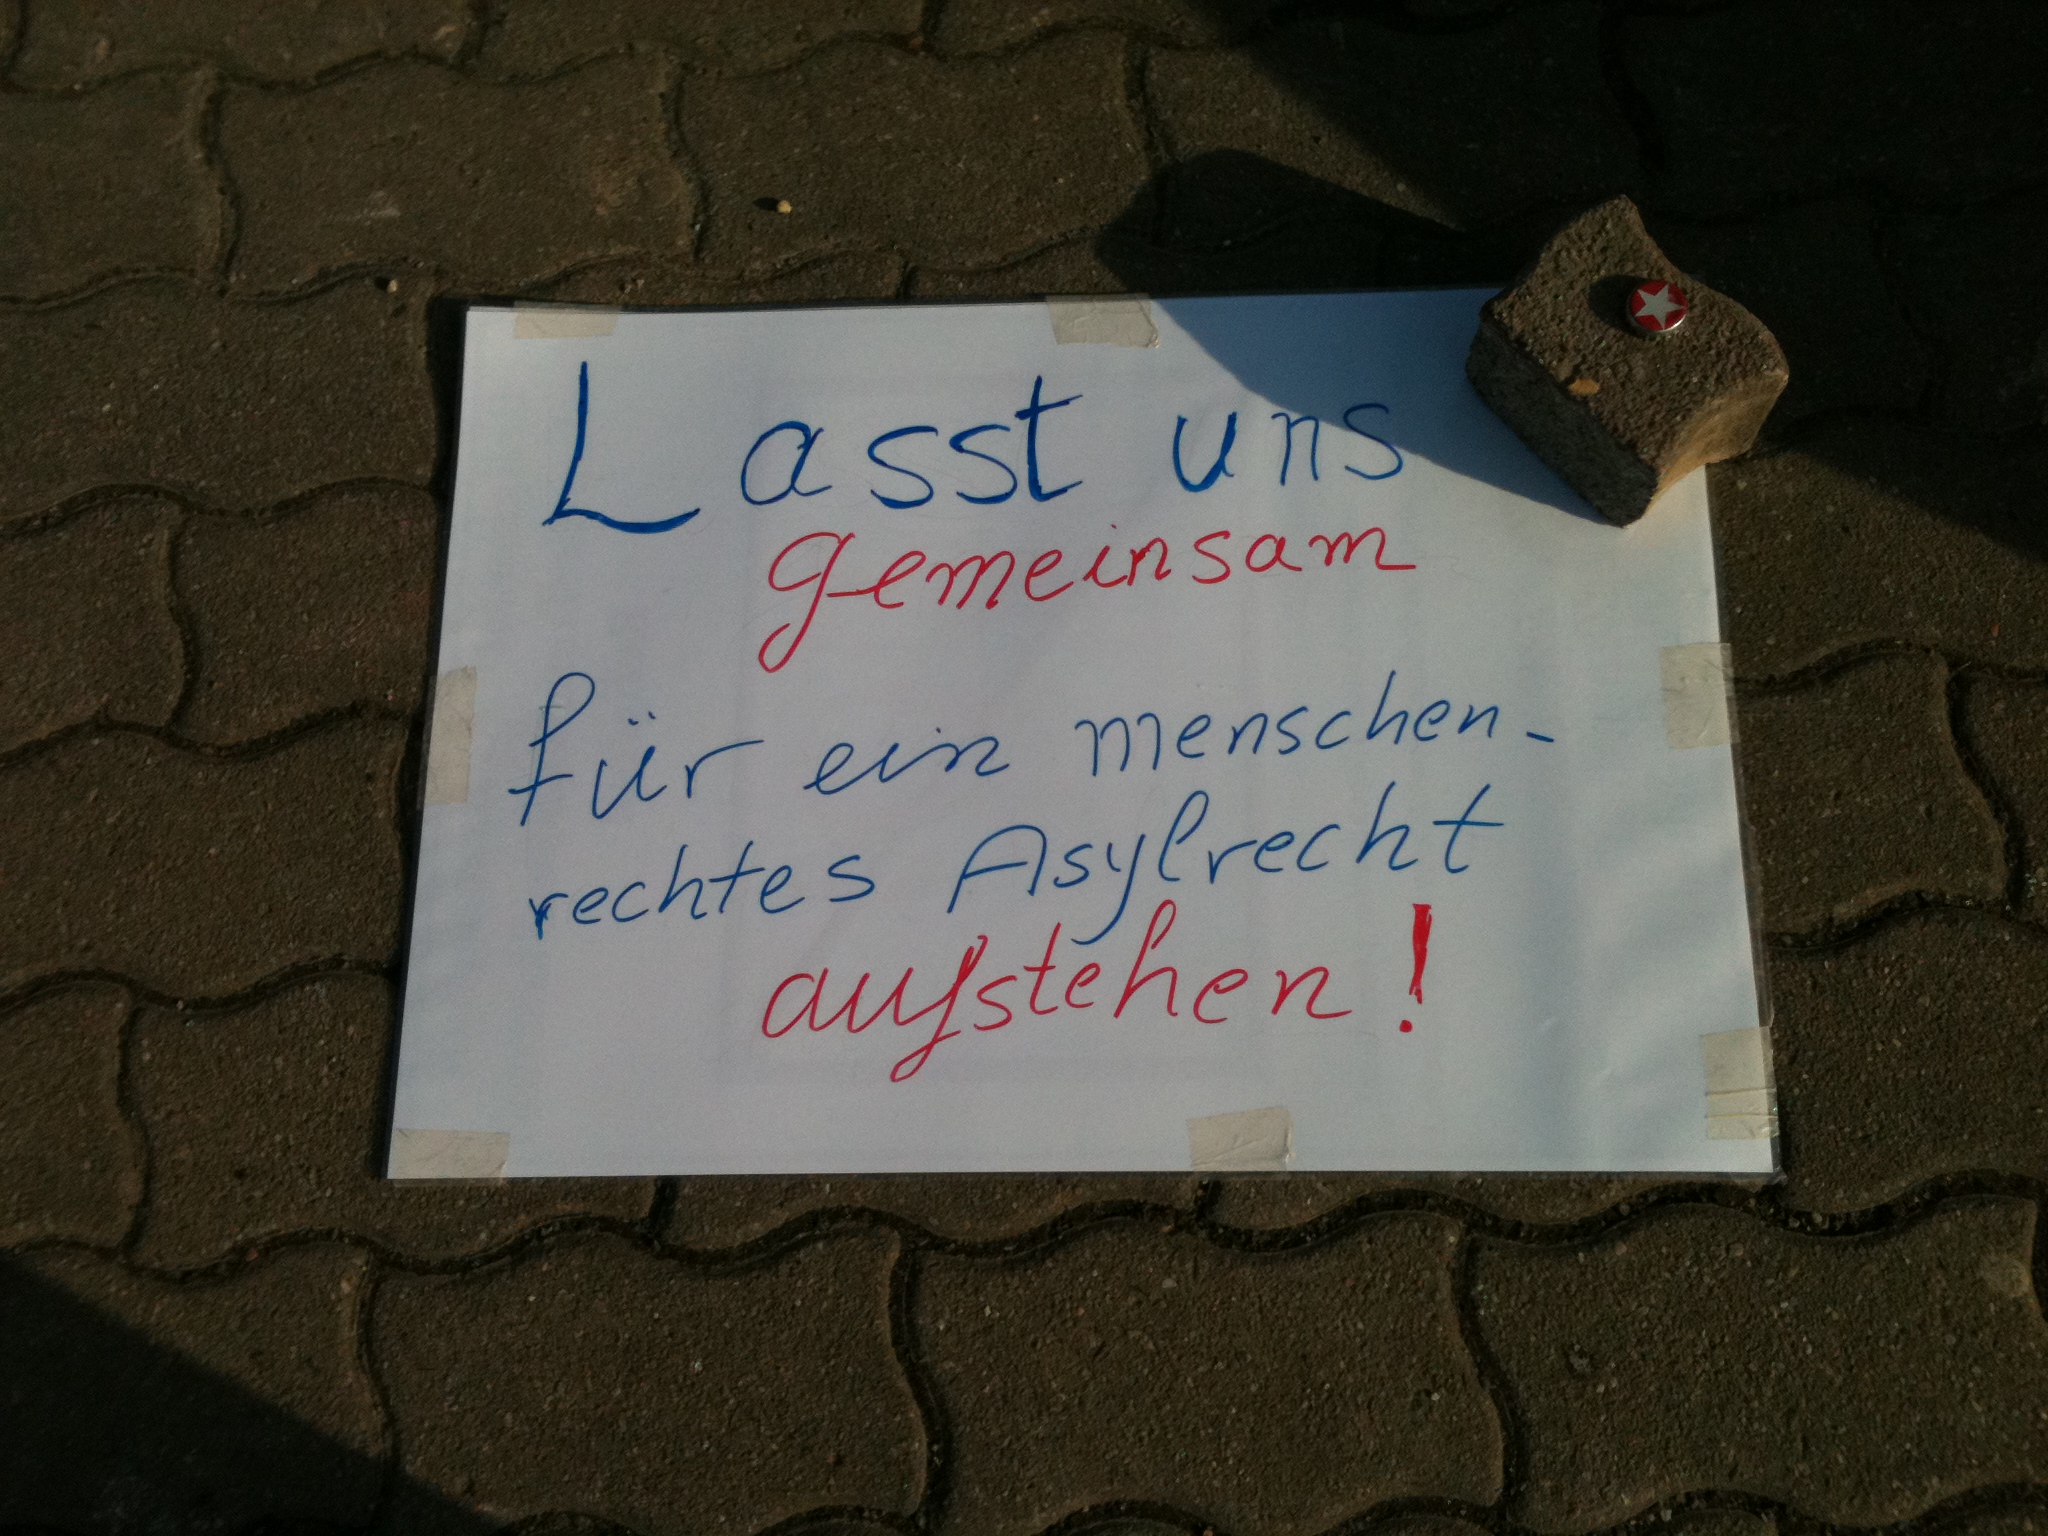 Lasst uns
gemeinsam
für ein menschen-
rechtes Asylrecht
aufstehen!